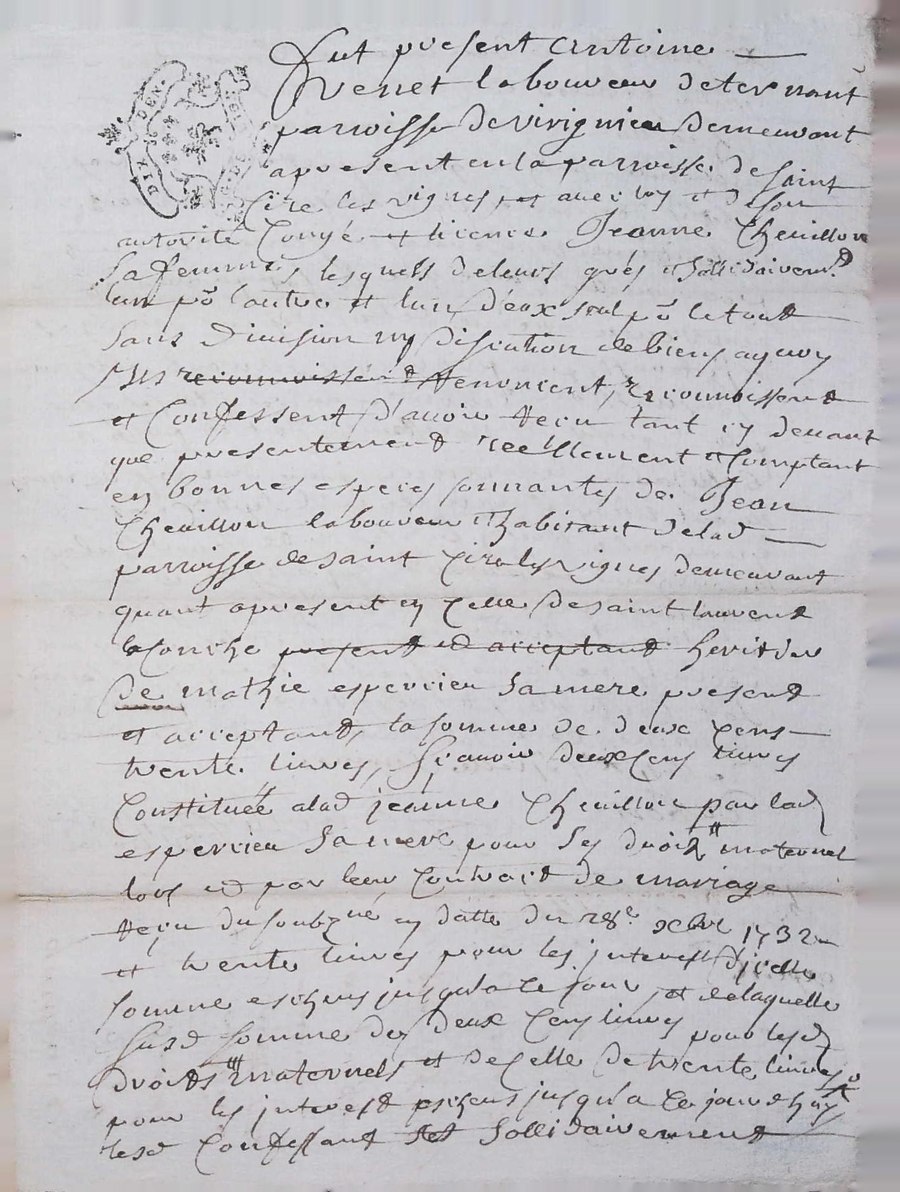 DIX DEN.
fut present Antoine
Venet laboureur de ternant
parroisse de virignieu demeurant
apresent en la parroisse de saint
Cire les vignes et avec luy et de son
autorité Congé et licence Jeanne Cheuillon
sa femme, lesquels de leurs grés et sollidairemt
lun pr lautre et lun d'eux seul pr le tout
sans division ny discution de biens aquoy
ils reconnoissent et renoncent, reconnoissent
et Confessent d'avoir reçu tant cy devant
que presentement réellement et Comptant
en bonnes especes sonnantes de Jean
Cheuillon laboureur et habitant de lad
parroisse de saint Cire les vignes demeurant
quant apresent en Celle de saint laurent
la Conche present et acceptant heritier
de mathie espercieu sa mere present
et acceptant, la somme de deux cens
trente livres, sçavoir deux Cens livres
Constituée alad jeanne Cheuillon par lad
espercieu sa mere pour ses droits maternels
lors et par leur Contract de mariage
reçu du soubzné en datte du 28e xbre 1732
et trente livres pour les interest d'icelle
somme eschus jusqua ce jour, et de laquelle
susd somme de deux Cens livres pour lesd
droits maternels et de Celle de trente livres
pour les interest eschus jusqu'a Ce jourd'huy
lesd Confessant sollidairement